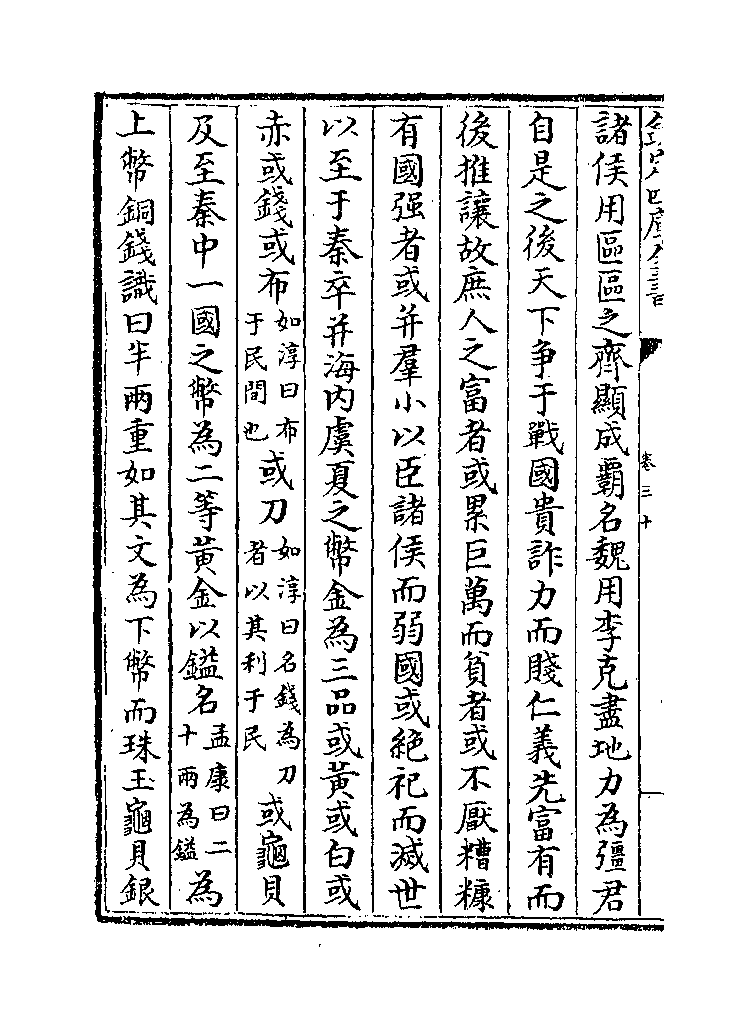 欽定四庫全書
卷三十
諸侯用區區之齊顯成霸名魏用李克盡地力為彊君
自是之後天下争于戰國貴詐力而賤仁義先富有而
後推讓故庶人之富者或累巨萬而貧者或不厭糟糠
有國强者或并羣小以臣諸侯而弱國或絶祀而滅世
以至于秦卒并海内虞夏之幣金為三品或黄或白或
赤或錢或布如淳曰布于民間也或刀如淳曰名錢為刀者以其利于民或龜貝
及至秦中一國之幣為二等黄金以鎰名孟康曰二十兩為鎰為
上幣銅錢識曰半兩重如其文為下幣而珠玉龜貝銀